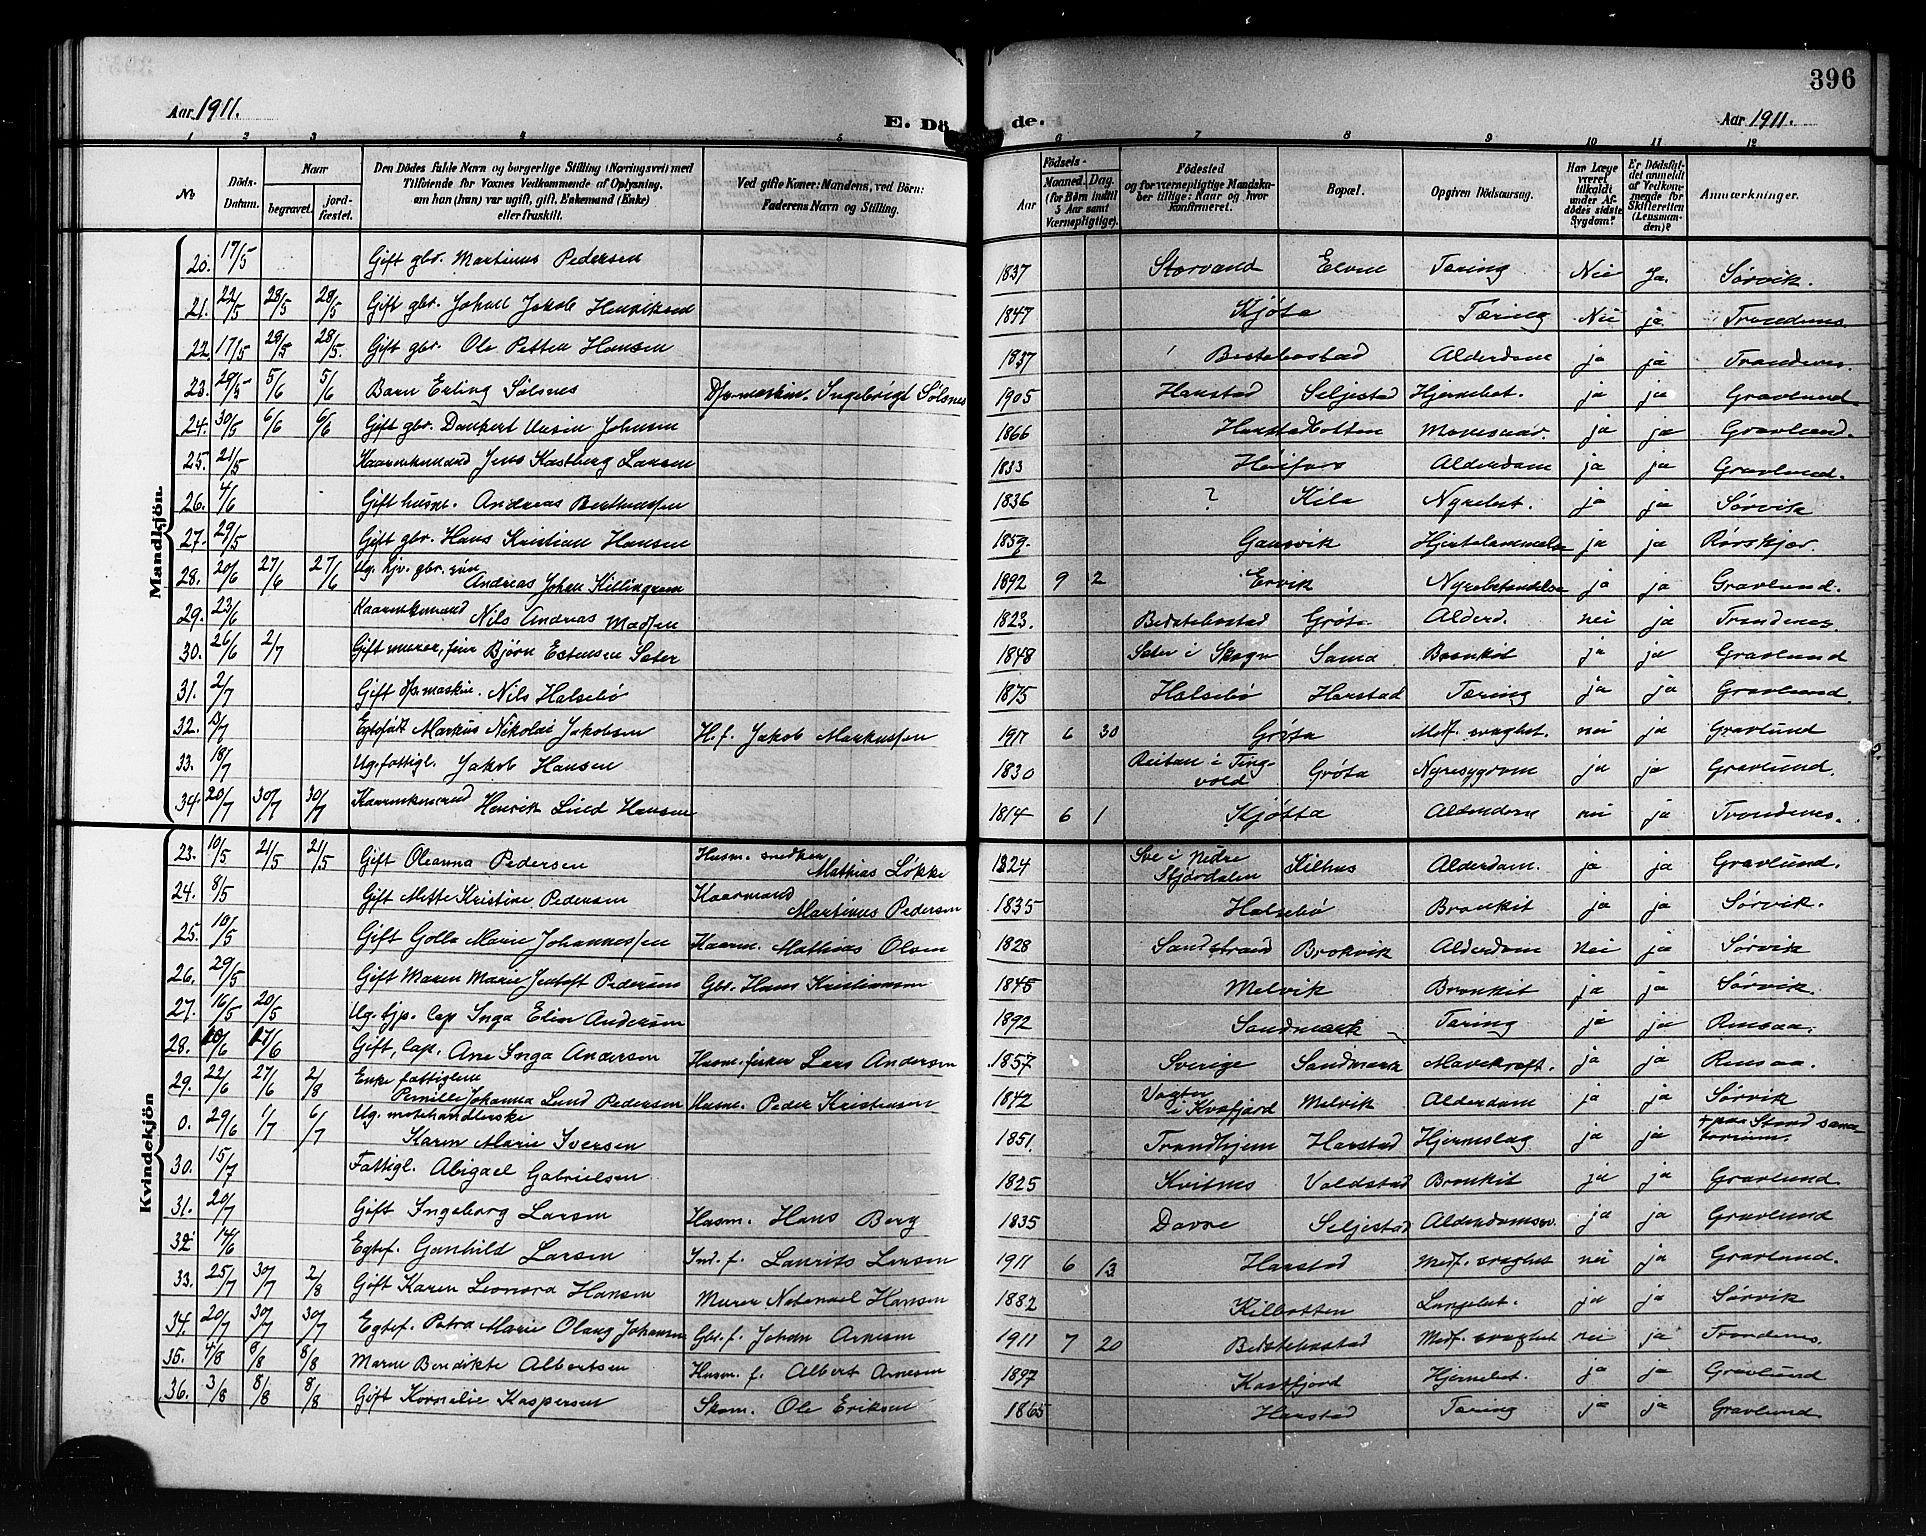 396
Aar 1911.
E. Döde.
Aar 1911.
1 2 3 4 5 6 7 8 9 10 11 12
No
Döds-Datum.
Naar
begravet.
jord-fæstet.
Den Dödes fulde Navn og borgerlige Stilling (Næringsvei) med
Tilföiende for Voxnes Vedkommende af Oplysning,
om han (hun) var ugift, gift, Enkemand (Enke)
eller fraskilt.
Ved gifte Koner: Mandens, ved Börn:
Faderens Navn og Stilling.
Födsels-
Aar
Maaned.
Dag.
(for Börn indtil
5 Aar samt
Værnepligtige).
Födested
og for værnepligtige Mandska-
ber tillige: Naar og hvor
konfirmeret.
Bopæl.
Opgiven Dödsaarsag.
Har Læge
været
tilkaldt
under Af-
dödes sidste
Sygdom?
Er Dödsfal-
det anmeldt
af Vedkom-
mende for
Skifteretten
(Lensman-
den)?
Anmærkninger.
Mandkjön.
20. 17/5 Gift gbr. Martinus Pedersen 1837 Storvand Elvene Tæring Nei Ja. Sørvik.
21. 22/5 28/5 28/5 Gift gbr. Johan Jakob Henriksen 1847 Kjøta Tæring Nei ja Trondenes
22. 17/5 28/5 28/5. Gift gbr. Ole Petter Hansen 1837 Bestebostad Alderdom ja ja Trondenes.
23. 29/5 5/6 5/6 Barn Erling Sølsnes Dpmaskin. Ingebrigt Sølsnes 1905 Harstad Seljestad Hjernebet. ja ja Gravlund.
24. 30/5 6/6 6/6 Gift gbr. Dankert Johnsen 1866 Harstadbotten Mavesaar. ja ja Gravlund.
25. 21/5 Kaarenkemand Jens Kastberg Larsen 1833 Høifors Alderdom ja ja Gravlund.
26. 4/6 Gift husm. Andreas Berthussen 1836 ? Kila Nyrebet. ja ja Sørvik
27. 29/5 Gift gbr. Hans Kristian Hansen 1859. Gausvik Hjertelammelse ja ja Rørskjær.
28. 20/6 27/6 27/6 Ug. hjv. gbr. søn Andreas Johan Killingrem 1892 9 2 Ervik Nyrebetændelse ja ja Gravlund.
29. 23/6 Kaarenkemand Nils Andreas Madsen 1823. Bedstebostad Grøta Alderd. nei ja Trondenes.
30. 26/6 2/7 Gift murer, Bjørn Estensen Sæter 1848 Sæter i Skogn Sama Bronkit ja ja Gravlund
31. 2/7 Gift dpmaskin. Nils Halsebø 1875 Halsebø Harstad Tæring ja ja Gravlund.
32. 13/7 Egtefødt Markus Nikolai Jakobsen H.f. Jakob Markussen 1911 6 30 Grøta Medf. svaghet. nei ja Gravlund
33. 18/7 Ug. fattigl. Jakob Hansen 1830 Reitan i Tingvold Grøta Nyresygdom ja ja Gravlund.
34. 20/7 30/7 30/7 Kaarenkemand Henrik Lind Hansen 1814 6 1 Kjøtta Alderdom nei ja Trondenes.
Kvindekjön
23. 10/5 21/5 21/5 Gift Oleanna Pedersen Husm. snedker Mathias Løkke 1824 Sve i Nedre Stjørdalen Kilhus Alderdom. ja ja Gravlund.
24. 8/5 Gift Mette Kristine Pedersen Kaarmand Martinus Pedersen 1835 Halsebø Bronkit ja ja Sørvik.
25. 10/5 Gift Golla Marie Johannessen Kaarm. Mathias Olsen 1828 Sandstrand Brokvik Alderdom Nei ja Sørvik
26. 29/5 Gift Maren Marie Jentoft Pedersen Gbr. Hans Kristiansen 1845 Melvik Bronkit ja ja Sørvik.
27. 16/5 20/5 Ug. tjp. lap Inga Elen Andersen 1892 Sandmark Tæring ja ja Rensaa.
28. 10/6 17/6 Gift, lap. Ane Inga Andersen Husm. fisker Lars Andersen 1857 Sverige Sandmark Mavekræft. ja ja Rensaa
29. 22/6 27/6 2/8 Enke fattiglem Pernille Johanna Lund Pedersen Husm. Peder Kristensen 1842 i Kvæfjord Melvik Alderdom ja ja Sørvik
0. 29/6 1/7 6/7 Ug. motehandlerske Karen Marie Iversen 1851. Trondhjem Harstad Hjerneslag ja ja + paa Stand sanatorium.
30. 15/7 Fattigl. Abigael Gabrielsen 1825 Kvitnes Voldstad Bronkit ja ja Gravlund
31. 20/7 Gift Ingeborg Larsen Husm. Hans Berg 1835 Davøe Seljestad Alderdomssv. ja ja Gravlund
32. 14/6 Egtef. Gunhild Larsen Ind. f. Laurits Larsen 1911 6 13 Harstad Medf. svaghet nei ja Gravlund.
33. 25/7 30/7 2/8 Gift Karen Leonora Hansen Murer Natanael Hansen 1882 Kilbotten Lungebet. ja ja Sørvik
34. 20/7 30/7 30/7 Egtef. Petra Marie Olaug Johansen Gbr. f. Johan Arnesen 1911 7 20 Bedstebostad Medf. svaghet nei ja Trondenes.
35. 4/8 8/8 8/8 Maren Benedikte Albertsen Husm. f. Albert Arnesen 1897 Kasfjord Hjernebet. ja ja Gravlund
36. 3/8 8/8 8/8 Gift Kornelie Kaspersen Skom. Ole Eriksen 1865 Harstad Tæring ja ja Gravlund